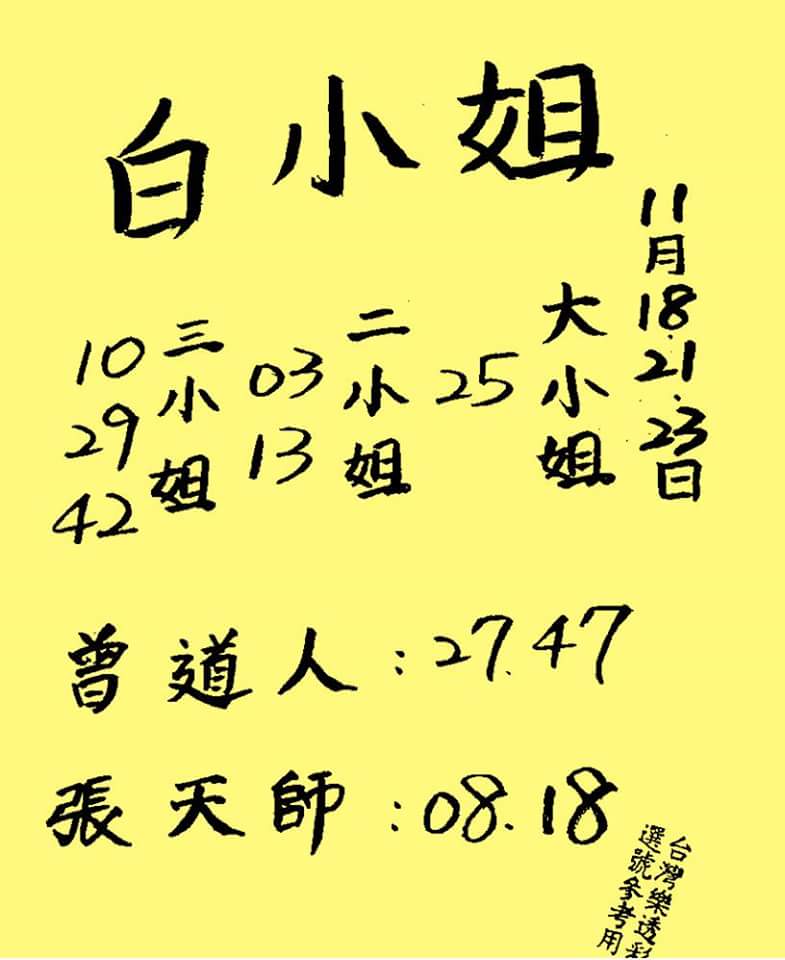 白小姐
11月18.21.23日
大小姐
25
二小姐
03
13
三小姐
10
29
42
曾道人:27.47
張天師:08.18
台灣樂透彩
選號參考用